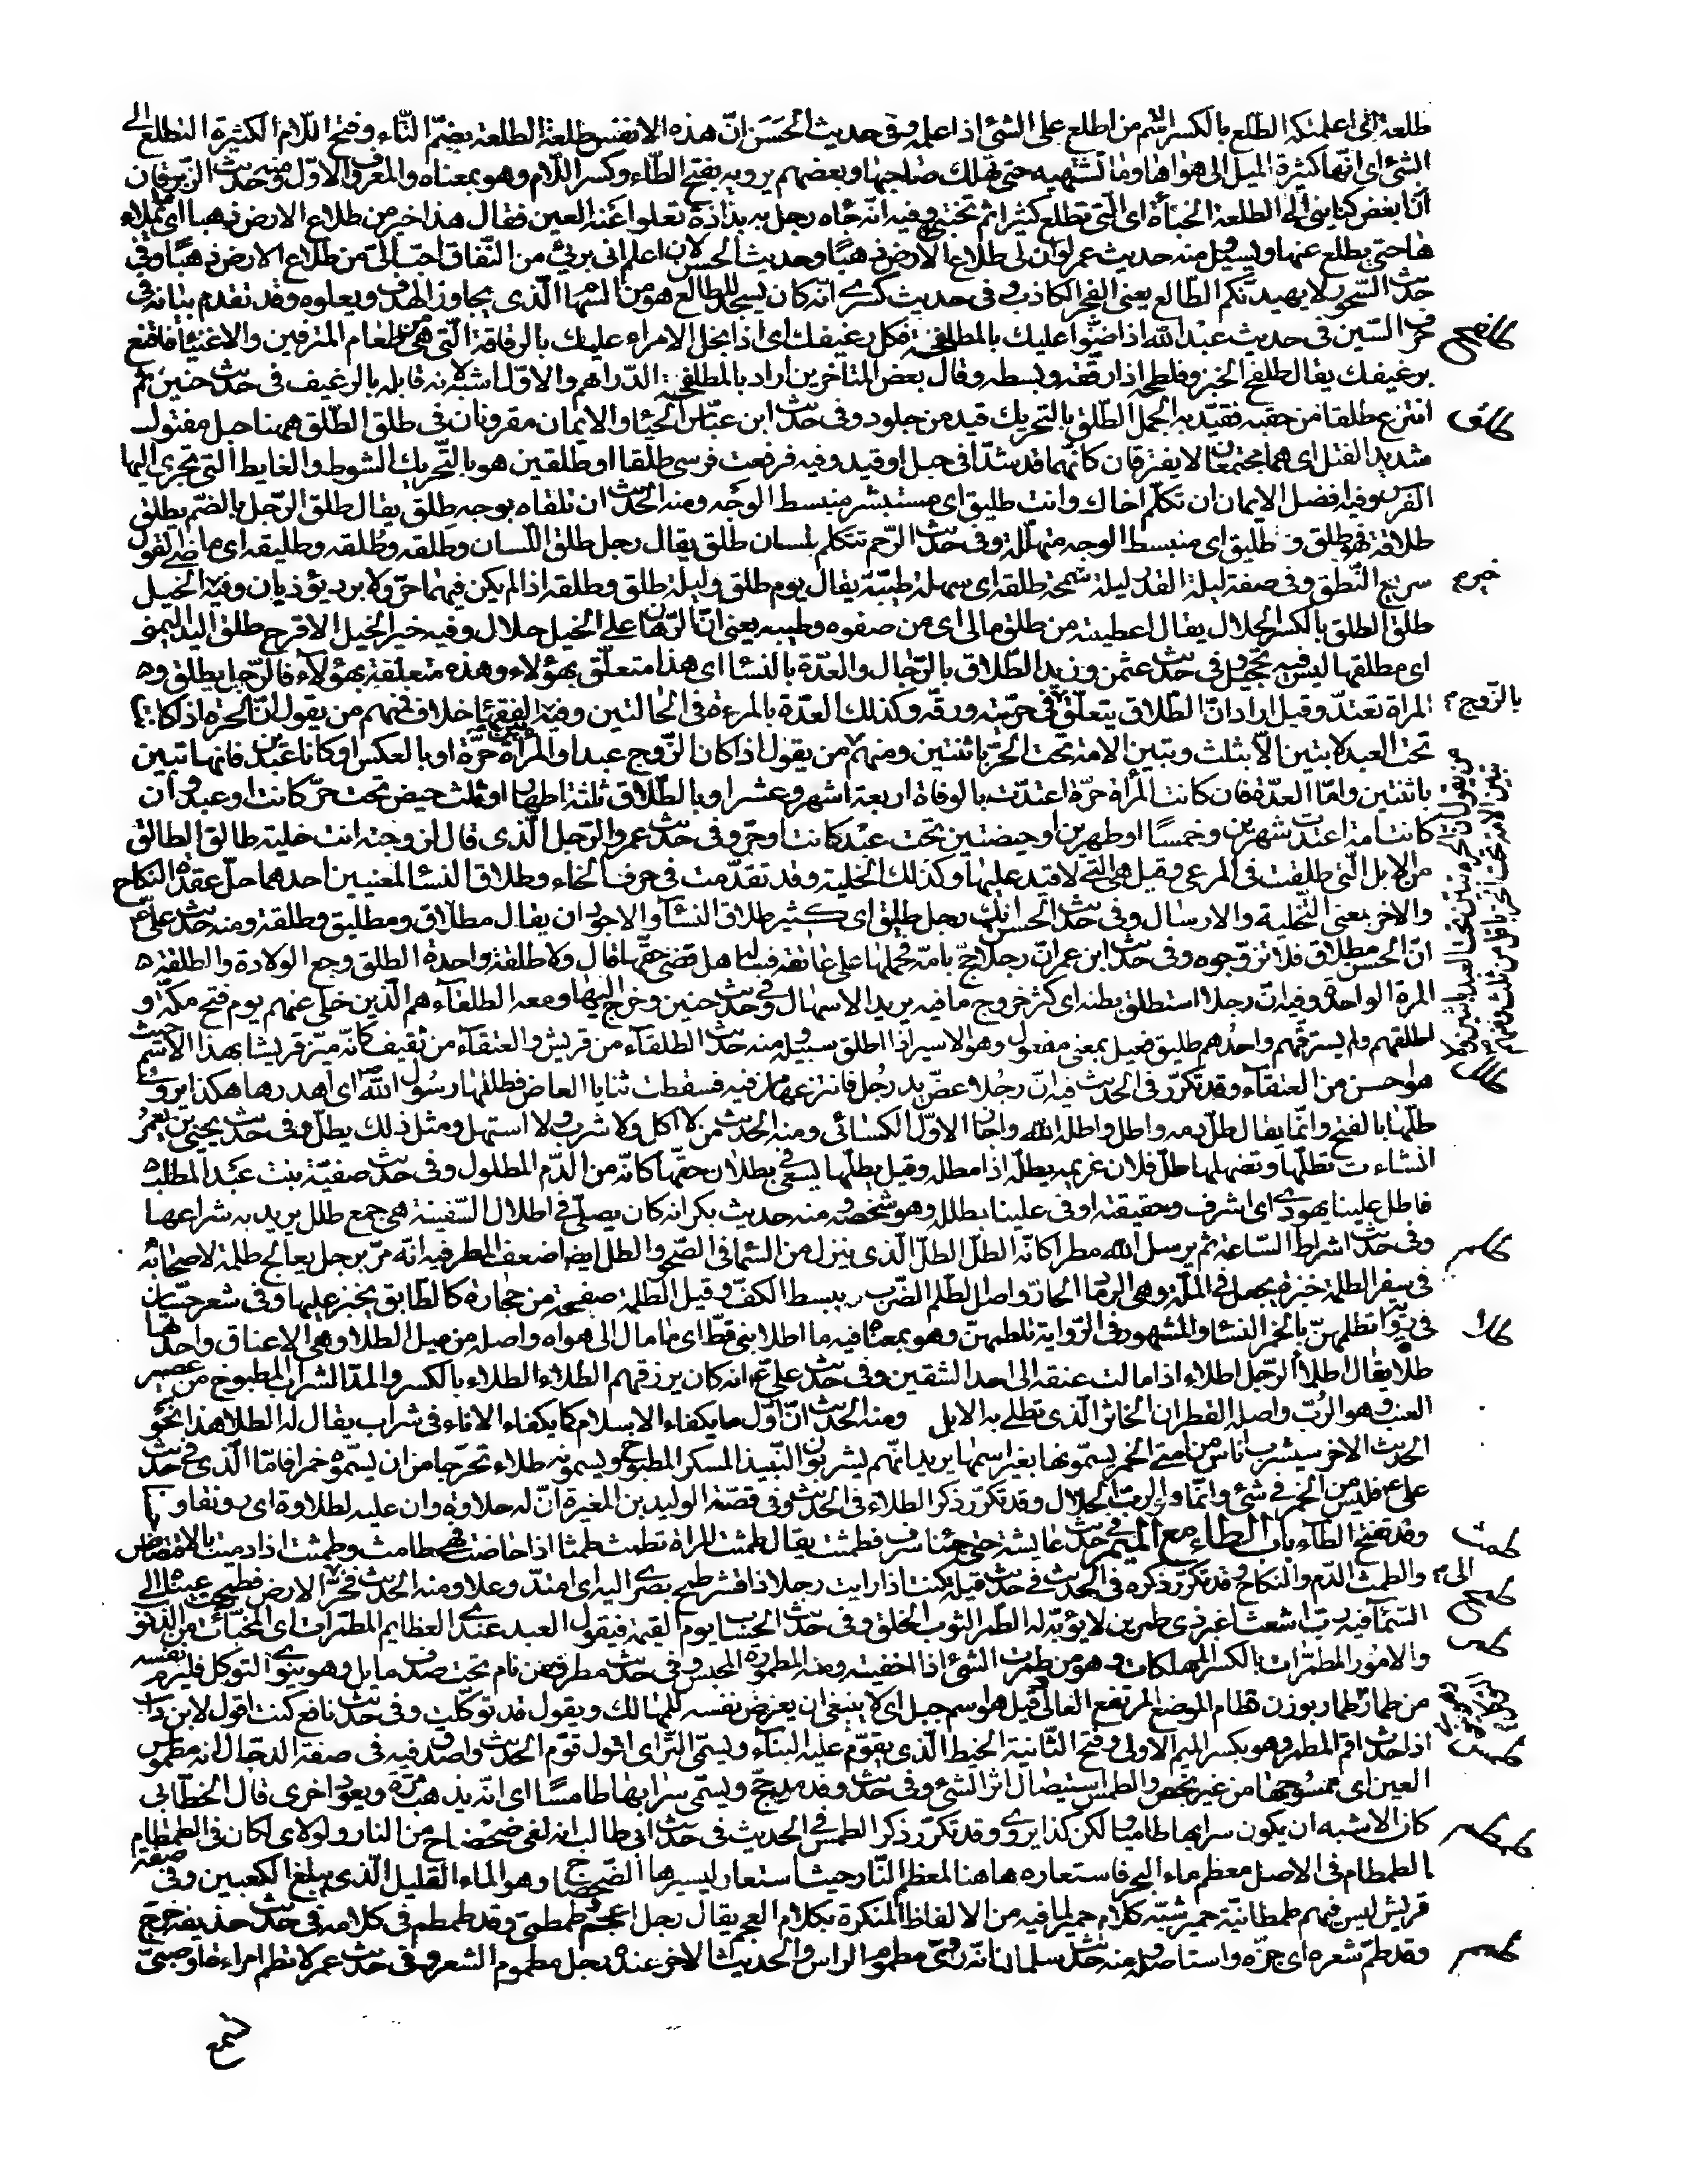 طلعة اى اعلمتكه الطلع بالكسر اسم من اطلع على الشئ اذا علمه وفى حديث الحسن انّ هذه الانفس طلعة الطلعة بضمّ الطّاء وفتح اللّام الكثيرة التطلع الى
الشئ اى انّها كثيرة الميل الى هواها وما تشتهيه حتى تهلك صاحبها وبعضهم يرويه بفتح الطّاء وكسر اللّام وهو بمعناه والمعروف الاوّل ومنه حديث الزبرقان
انّ ابغض كنايني الىّ الطلعة الخبأة اى التى تطلع كثيرا ثم تختبئ وفيه انّه جاءه رجل به بذاذة تعلوا عنه العين فقال هذا خير من طلاع الارض ذهبا اى ما يملاء
ها حتى يطلع عنها ويسيل ومنه حديث عمر لو ان لى طلاع الارض ذهبا وحديث الحسن لان اعلم انى برئ من النّفاق احبّ الىّ من طلاع الارض ذهبا وفى
حديث السّحور لا يهيدنّكم الطّالع يعنى الفجر الكاذب وفى حديث كسرى انّه كان يسجد للطالع هو من السّهام الّذى يجاوز الهدف ويعلوه وقد تقدم بيانه فى
حرف السّين فى حديث عبد الله اذا ضنّوا عليك بالمطلفحة فكل رغيفك اى اذا بخل الامراء عليك بالرقاقة الّتى هى من طعام المترفين والاغنيا فاقنع
طلفح
برغيفك يقال طلفح الخبز وفلطحه اذا رقّقه وبسطه وقال بعض المتاخرين اراد بالمطلفحة الدّراهم والاوّل اشبه لانه قابله بالرغيف فى حديث حنين ثم
انتزع طلقا من حقبه فقيّد به الجمل الطّلق بالتحريك قيد من جلود وفى حديث ابن عبّاس الحيا والايمان مقرونان فى طلق الطّلق ههنا حبل مفتول
طلق
شديد الفتل اى هما مجتمعان لا يفترقان كانّهما قد شدّا فى حبل او قيد وفيه فرفعت فرسى طلقا او طلقين هو بالتّحريك الشوط والغاية التى تجرى اليها
الفرس وفيه افضل الايمان ان تكلّم اخاك وانت طليق اى مستبشر منبسط الوجه ومنه الحديث ان تلقاه بوجه طلق يقال طلق الرّجل بالضّم يطلق
طلاقة فهو طلق و طليق اى منبسط الوجه متهلّله وفى حديث الرّحم تتكلم بلسان طلق يقال رجل طلق اللّسان وطلقه وطلقه وطليقه اى ماضى القول
سريع النّطق وفى صفة ليلة القدر ليلة سمحة طلقة اى سهلة طيّبة يقال يوم طلق وليلة طلق وطلقة اذا لم يكن فيهما حرّ ولا برد يؤذيان وفيه الخيل
طلق الطلق بالكسر الحلال يقال اعطيته من طلق مالى اى من صفوه وطيبه يعنى انّ الرّهان على الخيل حلال وفيه خير الخيل الاقرح طلق اليد اليمنى
اى مطلقها ليس فيه تحجيل وفى حديث عثمن وزيد الطّلاق بالرّجال والعدّة بالنسا اى هذا متعلّق بهؤلاء وهذه متعلّقة بهؤلاء فالرّجل يطلق و
المراة تعتدّ وقيل اراد انّ الطّلاق يتعلّق فى حرّيّته ورقّه وكذلك العدّة بالمرءة فى الحالتين وفيه الفقهاء خلاف فمنهم من يقول انّ الحرّة اذا كانت
بالزّوج
تحت العبد لا تبين الّا بثلث وتبين الامة تحت الحرّ باثنتين ومنهم من يقول اذا كان الزّوج عبدا والمراة حرّة او بالعكس او كانا عبدين فانها تبين
باثنتين وامّا العدّة فان كانت المراة حرّة اعتدّت بالوفاة اربعة اشهر وعشرا وبالطّلاق ثلثة اطهار او ثلث حيض تحت حرّ كانت او عبد وان
كانت امة اعتدت شهرين وخمسا او طهرين او حيضتين تحت عبد كانت او حرّ وفى حديث عمر والرّجل الّذى قال لزوجته انت خلية طالق الطالق
من الابل الّتى طلقت فى المرعى وقيل هى التى لا قيد عليها وكذلك الخلية وقد تقدّمت فى حرف الخاء وطلاق النسا لمعنيين احدهما حلّ عقدة النكاح
والاخر بمعنى التّخلية والارسال وفى حديث الحسن انك رجل طليق اى كثير طلاق النسآ والاجود ان يقال مطلاق ومطليق وطلقة ومنه حديث علىّ
انّ الحسن مطلاق فلا تزوّجوه وفى حديث ابن عمر انّ رجلا حجّ بامّه فحملها على عاتقه فساله هل قضى حقّها قال ولا طلقة واحدة الطلق وجع الولادة والطلقة
المرة الواحدة وفيه انّ رجلا استطلق بطنه اى كثر خروج ما فيه يريد الاسهال وفى حديث حنين وخرج اليها ومعه الطلقاء هم الّذين خلى عنهم يوم فتح مكّة و
اطلقهم ولم يسترقّهم واحدهم طليق فعيل بمعنى مفعول وهو الاسير اذا اطلق سبيله ومنه حديث الطلقاء من قريش والعتقاء من ثقيف كانّه ميّز قريشا بهذا الاسم حيث
هو احسن من العتقاء وقد تكرّر فى الحديث فيه انّ رجلا عضّ يد رجل فانتزعها من فيه فسقطت ثنايا العاض فطلّها رسول الله اى اهدرها هكذا يروى
طلل
طلّها بالفتح وانّما يقال طلّ دمه واطل واطله الله واجاز الاوّل الكسائى ومنه الحديث من لا اكل ولا شرب ولا استهل ومثل ذلك يطلّ وفى حديث يحيى بن يعمر
انشاءت تطلّها وتضهلها طلّ فلان غريمه يطلّه اذا مطله وقيل يطلّها يسعى فى بطلان حقّها كانّه من الدّم المطلول وفى حديث صفيّة بنت عبد المطلب
فاطل علينا يهودى اى اشرف وحقيقته اوفى علينا بطلله وهو شخصه ومنه حديث بكر انه كان يصلّى فى اطلال السّفينة هى جمع طلل يريد به شراعها
وفى حديث اشراط السّاعة ثم يرسل الله مطرا كانّه الطلّ الطلّ الّذى ينزل من السّما فى الصّحو والطلّ ايضا اضعف المطر فيه انّه مرّ برجل يعالج طلمة لاصحابه
طلم
فى سفر الطلمة خبزة يجعل فى الملّة وهى الرماد الحارّ واصل الطلم الضّرب ببسط الكفّ وقيل الطلمة صفيحة من حجارة كالطّابق يخبز عليها وفى شعر حسّان
فى رواية تطلمهنّ بالخمر النسا والمشهور فى الرّواية تلطمهنّ وهو بمعناه فيه ما اطلا نبىّ قطّ اى ما مال الى هواه واصله من ميل الطلا وهى الاعناق واحدها
طلا
طلاة يقال اطلا الرّجل اطلاء اذا مالت عنقه الى احد الشقين وفى حديث علىّ ع انه كان يرزقهم الطّلاء الطلاء بالكسر والمدّ الشراب المطبوخ من عصير
العنب وهو الرّبّ واصله القطران الخاثر الّذى تطلى به الابل ومنه الحديث انّ اوّل ما يكفاء الاسلام كما يكفاء الاناء فى شراب يقال له الطلا هذا نحو
الحديث الاخر سيشرب اناس من امتى الخمر يسمّونها بغير اسمها يريد انّهم يشربون النّبيذ المسكر المطبوخ ويسمونه طلاء تحرّجا من ان يسمّوه خمرا فامّا الّذى فى حديث
على ع فليس من الخمر فى شئ وانّما هو الرّبّ الحلال وقد تكرّر ذكر الطلاء فى الحديث وفى قصّة الوليد بن المغيرة انّ له حلاوة وان عليه لطلاوة اى رونقا و
وقد تفتح الطآء باب الطاء مع الميم فى حديث عايشة حتى جئنا سرف فطمثت يقال طمثت المراة تطمث طمثا اذا حاضت فهى طامث وطمثت اذا دميت بالافتضاض
طمث
والطمث الدّم والنكاح وقد تكرّر ذكره فى الحديث فى حديث قيلة كنت اذا رايت رجلا ذا قشر طمح بصرى اليه اى امتدّ وعلا ومنه الحديث فخرّ الى الارض فطمحت عيناه الى
طمح
السّمآ فيه ربّ اشعث اغبر ذى طمرين لا يؤبه له الطّمر الثوب الخلق وفى حديث الحساب يوم القيمة فيقول العبد عندى العظايم المطمّرات اى المخبّآت من الذنوب
طمر
والامور المطمّرات بالكسر المهلكات وهو من طمرت الشئ اذا اخفيته ومنه المطمورة الحبس وفى حديث مطرف من نام تحت صدف مايل وهو ينوى التوكل فليرم نفسه
من طمار طمار بوزن قطام الموضع المرتفع العالى وقيل هو اسم جبل اى لا ينبغى ان يعرض نفسه للمهالك ويقول قد توكّلت وفى حديث نافع كنت اقول لابن داب
اذا حدث اقم المطمر وهو بكسر الميم الاولى وفتح الثّانية الخيط الّذى يقوّم عليه البناء ويسمّى التّرّ اى اقول قوّم الحديث واصدق فيه فى صفة الدجّال انه مطموس
طمس
العين اى ممسوحها من غير بخص والطمس استيصال اثر الشئ وفى حديث وفد مذحج ويمسى سرابها طامسا اى انه يذهب مرّة ويعود اخرى قال الخطّابى
كان الاشبه ان يكون سرابها طاميا ولكن كذا يروى وقد تكرّر ذكر الطمس فى الحديث فى حديث ابى طالب انه لفى ضحضاح من النار ولولاى لكان فى الطمطام
طمطم
الطمطام فى الاصل معظم ماء البحر فاستعاره هاهنا لمعظم النّار حيث استعار ليسيرها الضحضاح وهو الماء القليل الّذى يبلغ الكعبين وفى صفة
قريش ليس فيهم طمطانيّة حمير شبّه كلام حمير لما فيه من الالفاظ المنكرة بكلام العجم يقال رجل اعجم طمطمى وقد طمطم فى كلامه فى حديث حذيفة خرج
وقد طمّ شعره اى جزّه واستاصله ومنه حديث سلمان انّه رؤى مطموم الراس والحديث الاخر عنده رجل مطموم الشعر وفى حديث عمر لا تطم امراة او صبىّ
طمم
تسمع